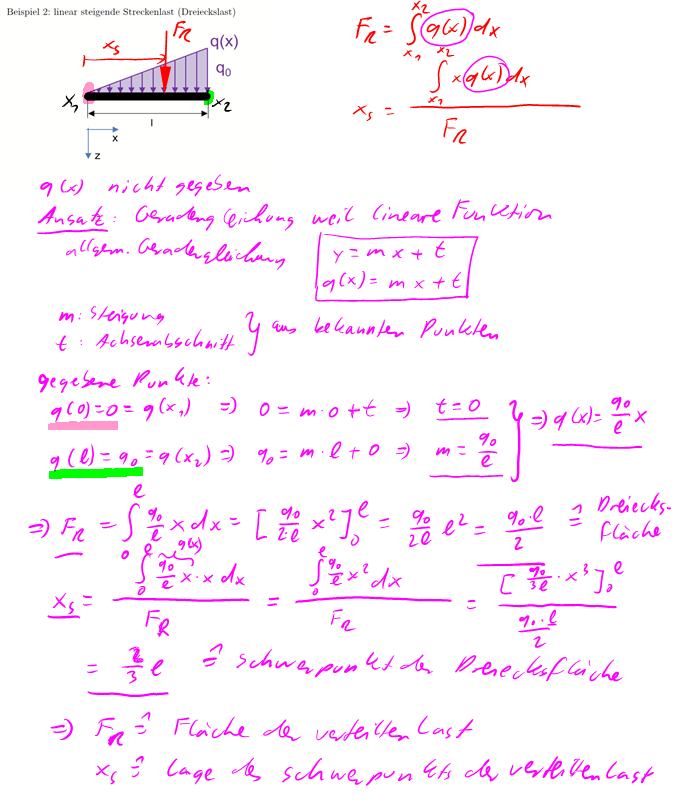 Beispiel 2: linear steigende Streckenlast (Dreieckslast)
F_R
x_s
q(x)
q_0
x_1
x_2
l
x
z
F_R = ∫_{x_1}^{x_2} q(x) dx
x_s = (∫_{x_1}^{x_2} x q(x) dx) / F_R
q(x) nicht gegeben
Ansatz: Geradengleichung weil lineare Funktion
allgem. Geradengleichung
y = m x + t
q(x) = m x + t
m: Steigung
t: Achsenabschnitt } aus bekannten Punkten
gegebene Punkte:
q(0)=0 = q(x_1) ⇒ 0 = m·0 + t ⇒ t = 0
q(l) = q_0 = q(x_2) ⇒ q_0 = m·l + 0 ⇒ m = q_0/l } ⇒ q(x) = q_0/l x
⇒ F_R = ∫_0^l q_0/l x dx = [q_0/2l x²]_0^l = q_0/2l l² = q_0·l/2 ≙ Dreiecksfläche
q(x)
x_s = (∫_0^l q_0/l x·x dx) / F_R = (∫_0^l q_0/l x² dx) / F_R = [q_0/3l · x³]_0^l / (q_0·l/2)
= 2/3 l ≙ Schwerpunkt der Dreiecksfläche
⇒ F_R ≙ Fläche der verteilten Last
x_s ≙ Lage des Schwerpunkts der verteilten Last